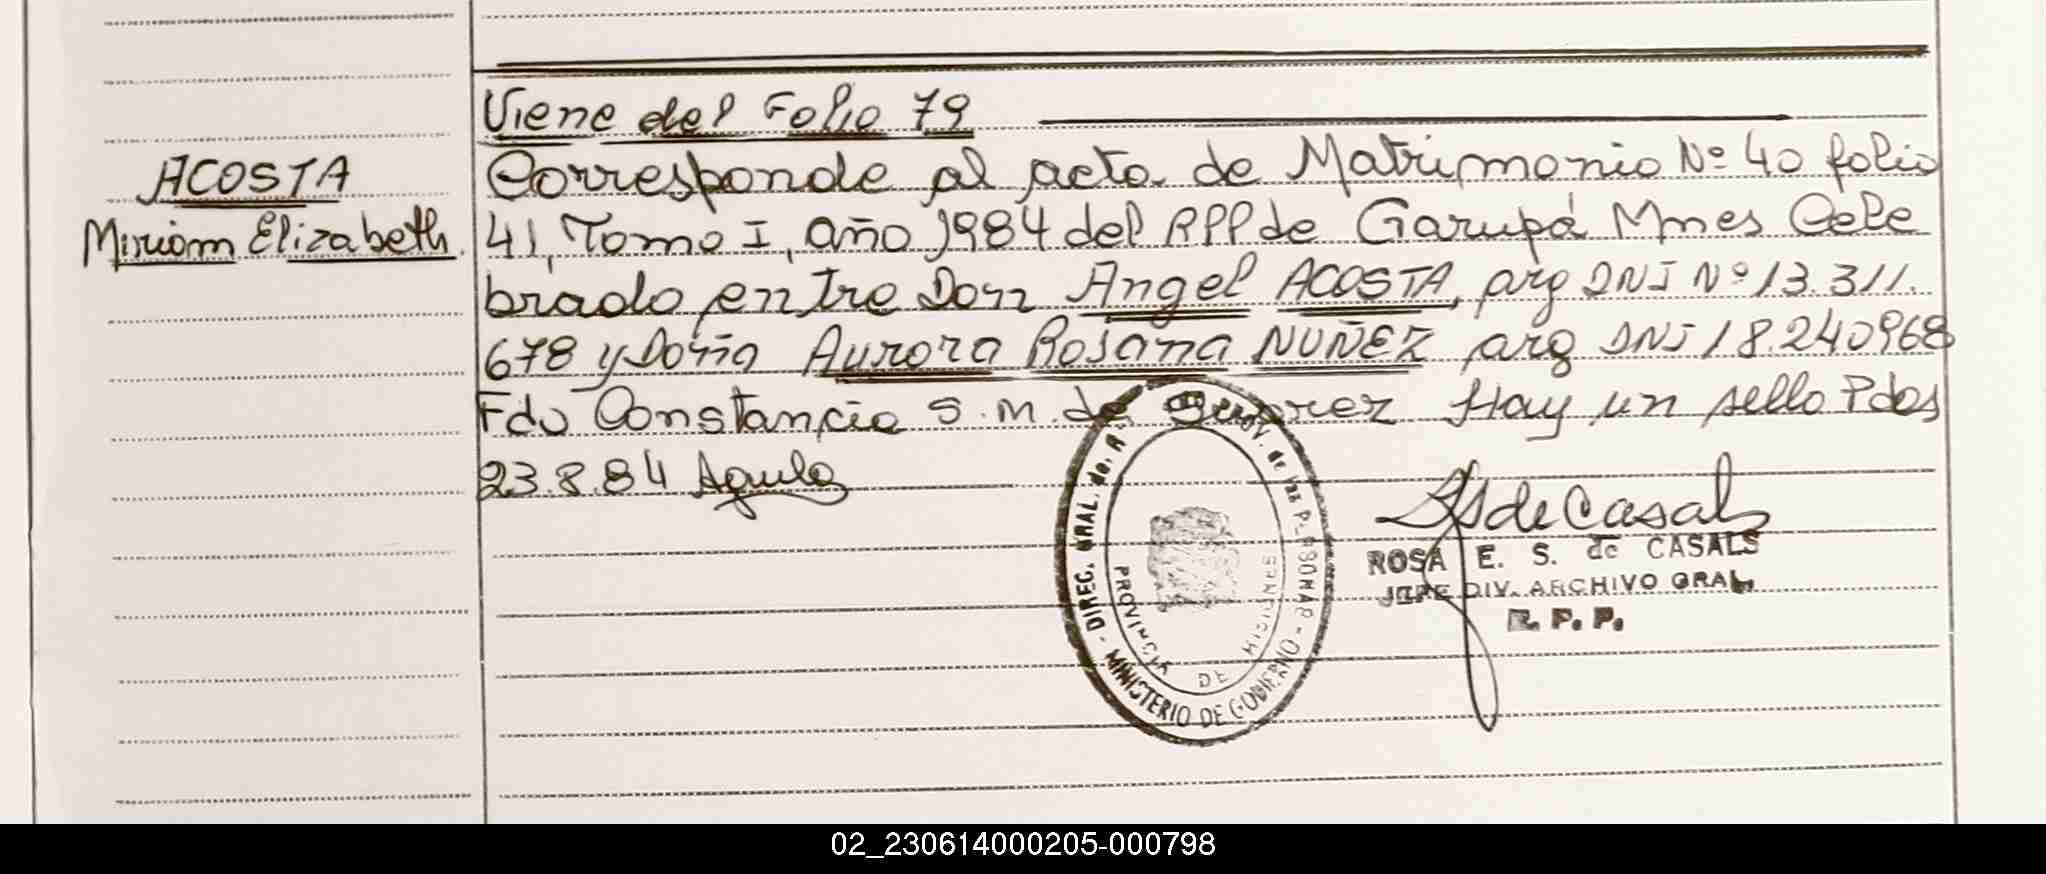 Viene del Folio 79
ACOSTA
Miriam Elizabeth.
Corresponde al acta de Matrimonio Nº 40 folio
41, Tomo I, año 1984 del RPP de Garupá Mnes Cele
brado entre Don Angel ACOSTA, arg DNI Nº 13.311.
678 y Doña Aurora Rosana NUÑEZ arg DNI 18.240968
Fdo Constancia S.M. de Hay un sello Pdas
23.8.84
de Casals
ROSA E. S. de CASALS
JEFE DIV. ARCHIVO GRAL.
R. P. P.
DIREC. GRAL. de. PROV. de las PERSONAS - MINISTERIO DE GOBIERNO -
PROVINCIA DE MISIONES
02_230614000205-000798